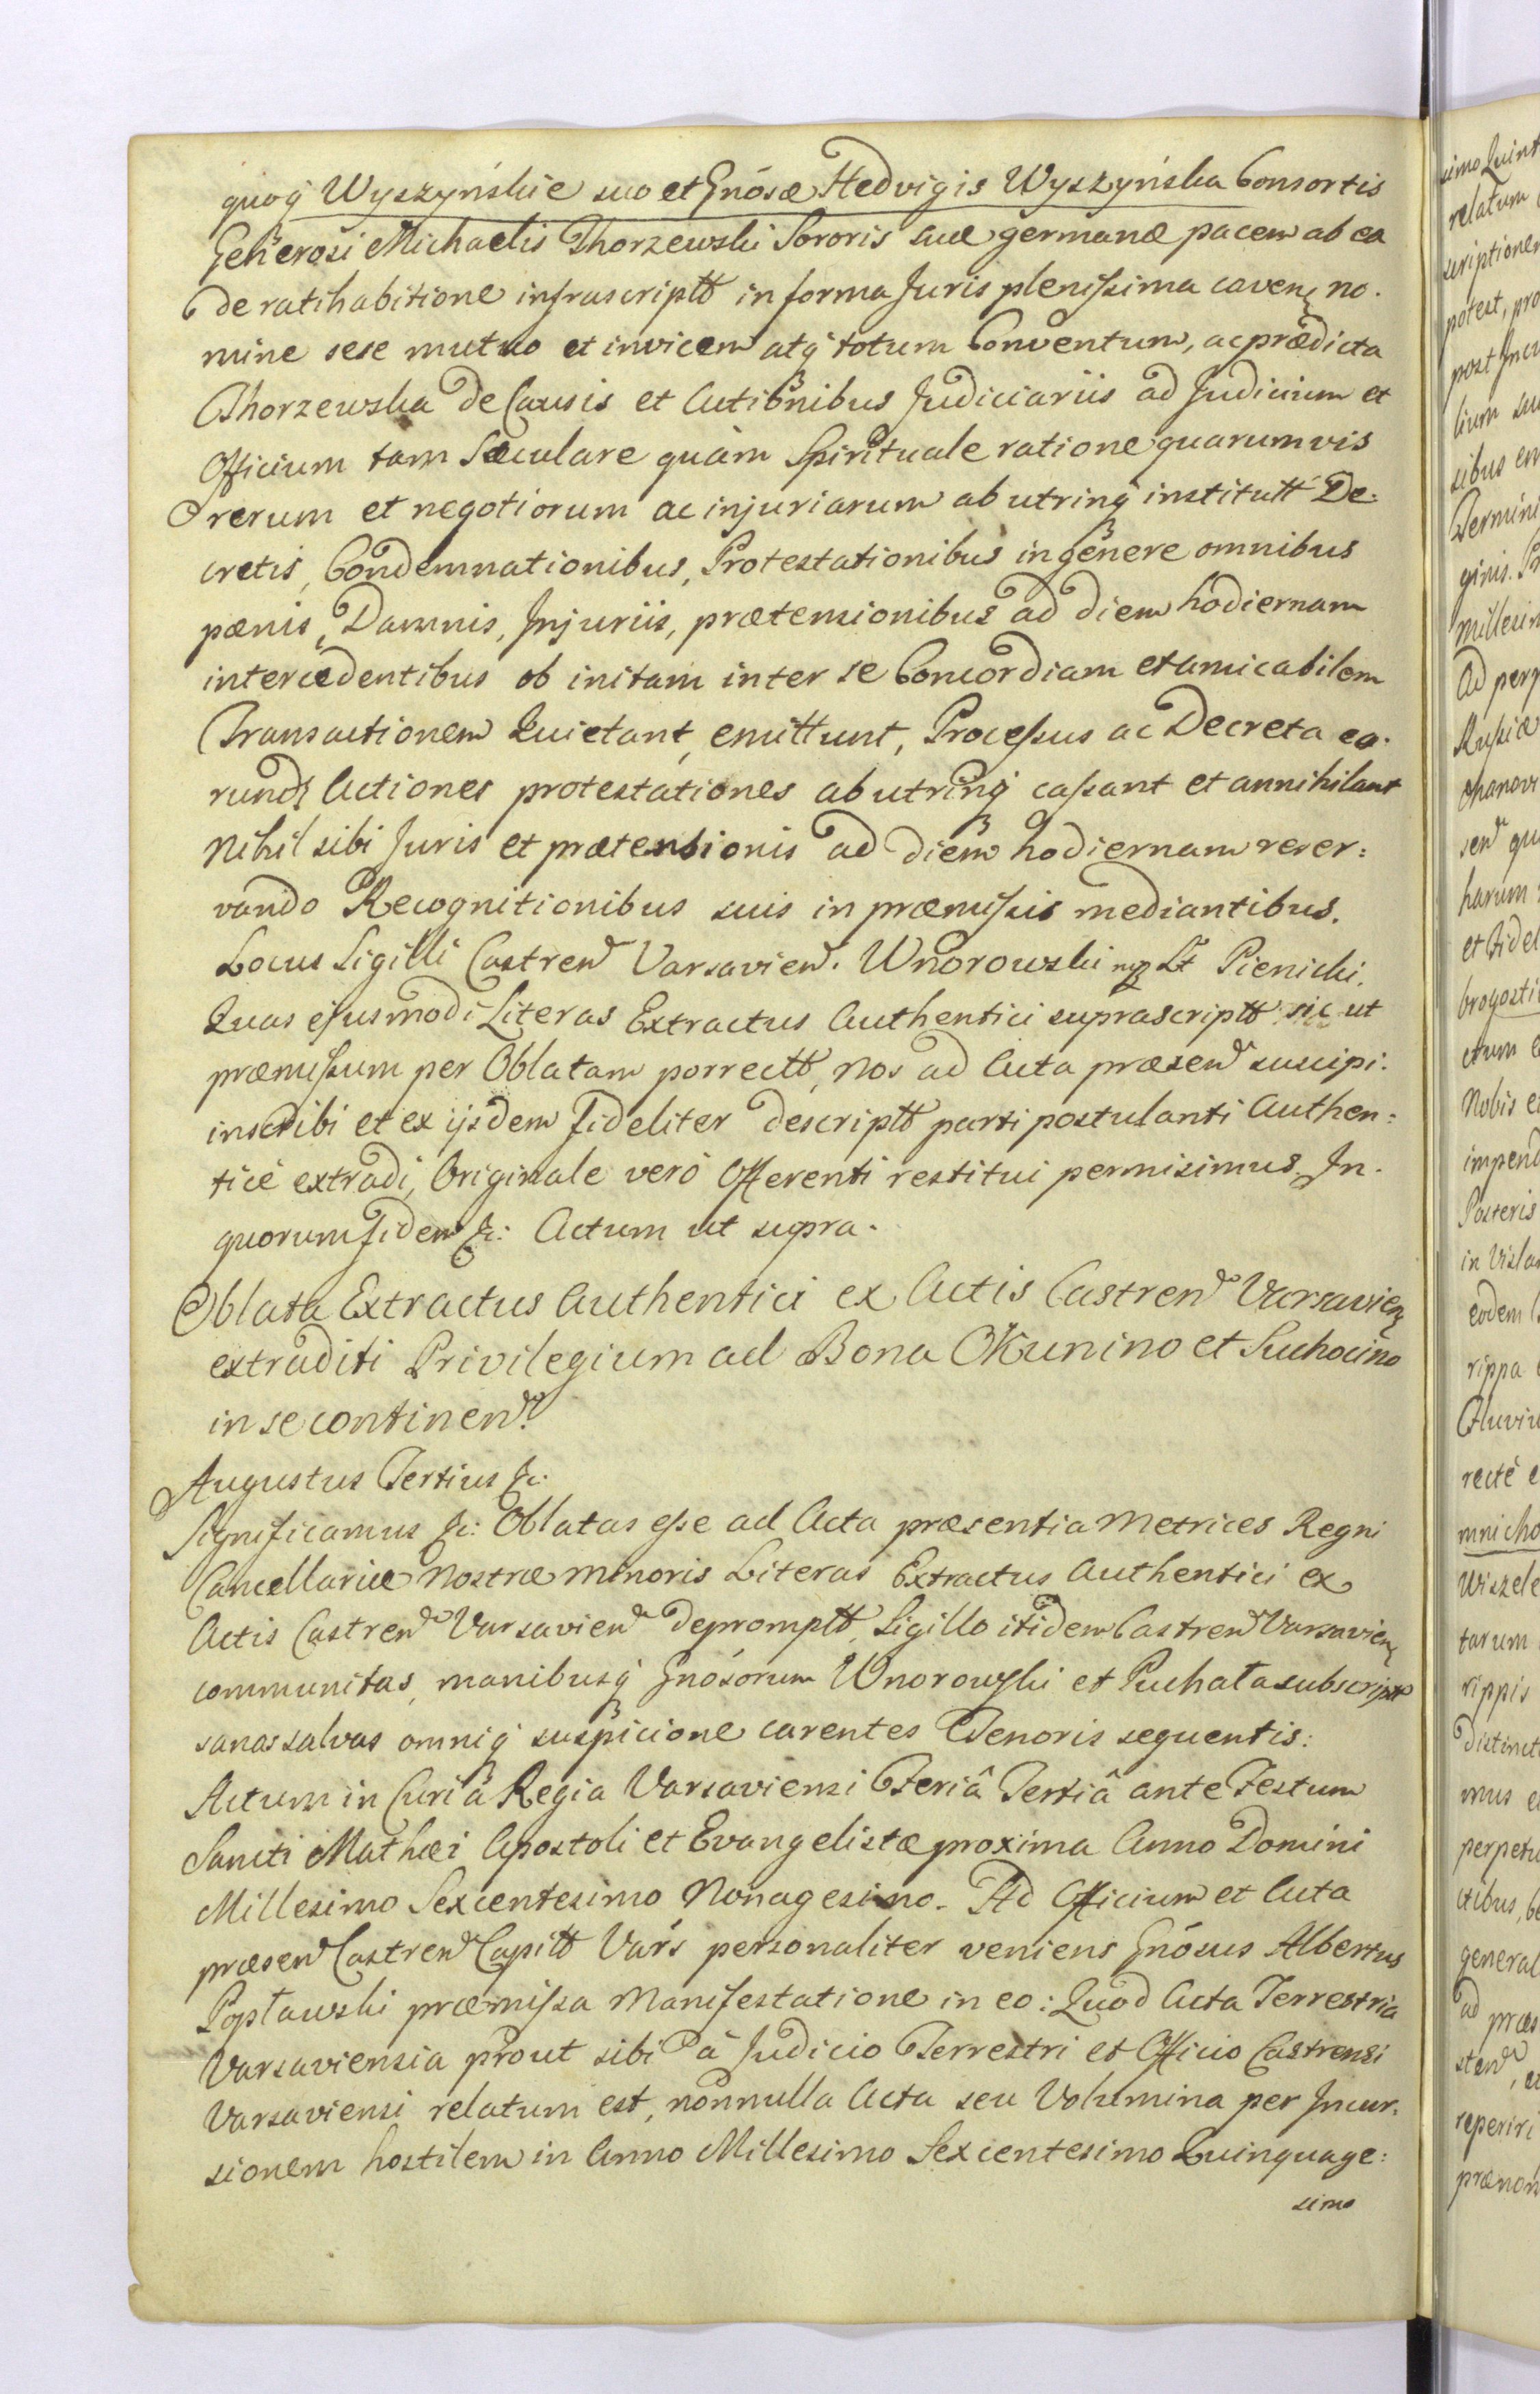 quoq̃ Wyszyńskie suo et Gnósæ Hedvigis Wyszyńska Consortis
Generosi Michaelis Thorzewski Sororis suæ germanæ pacem ab ea
de ratihabitione infrascriptt in forma Juris plenissima caven no-
mine sese mutuo et invicem atq̃ totum Conventum, ac prædicta
Thorzewska de Causis et Actionibus Judiciariis ad Judicium et
Officium tam Sæculare quàm Spirituale ratione quarumvis
rerum et negotiorum ac injuriarum ab utrinq̃ institutt De-
cretis, Condemnationibus, Protestationibus in genere omnibus
pænis, Damnis, Injuriis, prætensionibus ad diem hodiernam
intercedentibus ob initam inter se Concordiam et amicabilem
Transactionem Quietant, emittunt, Processus ac Decreta eo-
rund Actiones protestationes ab utrinq̃ cassant et annihilant
Nihil sibi Juris et prætensionis ad diem hodiernam reser:
vando Recognitionibus suis in præmissis mediantibus.
Locus Sigilli Castren Varsavien. Wnorowski mp Lt Pienicki.
Quas ejusmodi Literas Extractus Authentici suprascriptt sic ut
præmissum per Oblatam porrectt, Nos ad Acta præsen suscipi:
inscribi et ex ijsdem fideliter descriptt parti postulanti Authen:
ticè extradi, Originale verò Offerenti restitui permisimus. In-
quorum fidem &c: Actum ut supra.
Oblata Extractus Authentici ex Actis Castren Varsavien
extraditi Privilegium ad Bona Okunino et Suchocino
in se continen.
Augustus Tertius &c:
Significamus &c: Oblatas esse ad Acta præsentia Metrices Regni
Cancellariæ Nostræ Minoris Literas Extractus Authentici ex
Actis Castren Varsavien depromptt, Sigillo itidem Castren Varsavien
communitas, manibusq̃ Gnósorum Wnorowski et Puchała subscriptt
sanas salvas omniq̃ suspicione carentes Tenoris sequentis:
Actum in Curiâ Regia Varsaviensi Feriâ Tertiâ ante Festum
Sancti Mathæi Apostoli et Evangelistæ proxima Anno Domini
Millesimo Sexcentesimo Nonagesimo. Ad Officium et Acta
præsen Castren Capitt Vars personaliter veniens Gnósus Albertus
Popławski præmissa Manifestatione in eo: Quod Acta Terrestria
Varsaviensia prout sibi à Judicio Terrestri et Officio Castrensi
Varsaviensi relatum est, nonnulla Acta seu Volumina per Incur-
sionem hostilem in Anno Millesimo Sexcentesimo Quinquage:
simo